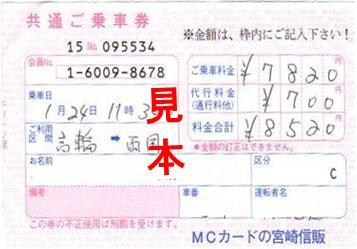 共通ご乗車券
15 No 095534
※金額は、枠内にご記入下さい!
会員No
1-6009-8678
乗車日
1月24日11時3
ご利用区間 高輪 ➡ 両国
お名前
備考
ご乗車料金 ¥7820
代行料金(通行料他) ¥700
料金合計 ¥8520
●金額の訂正はできません。
区分
C
車番
運転者名
この券の不正使用は刑罰を受けます。
MCカードの宮崎信販
見本